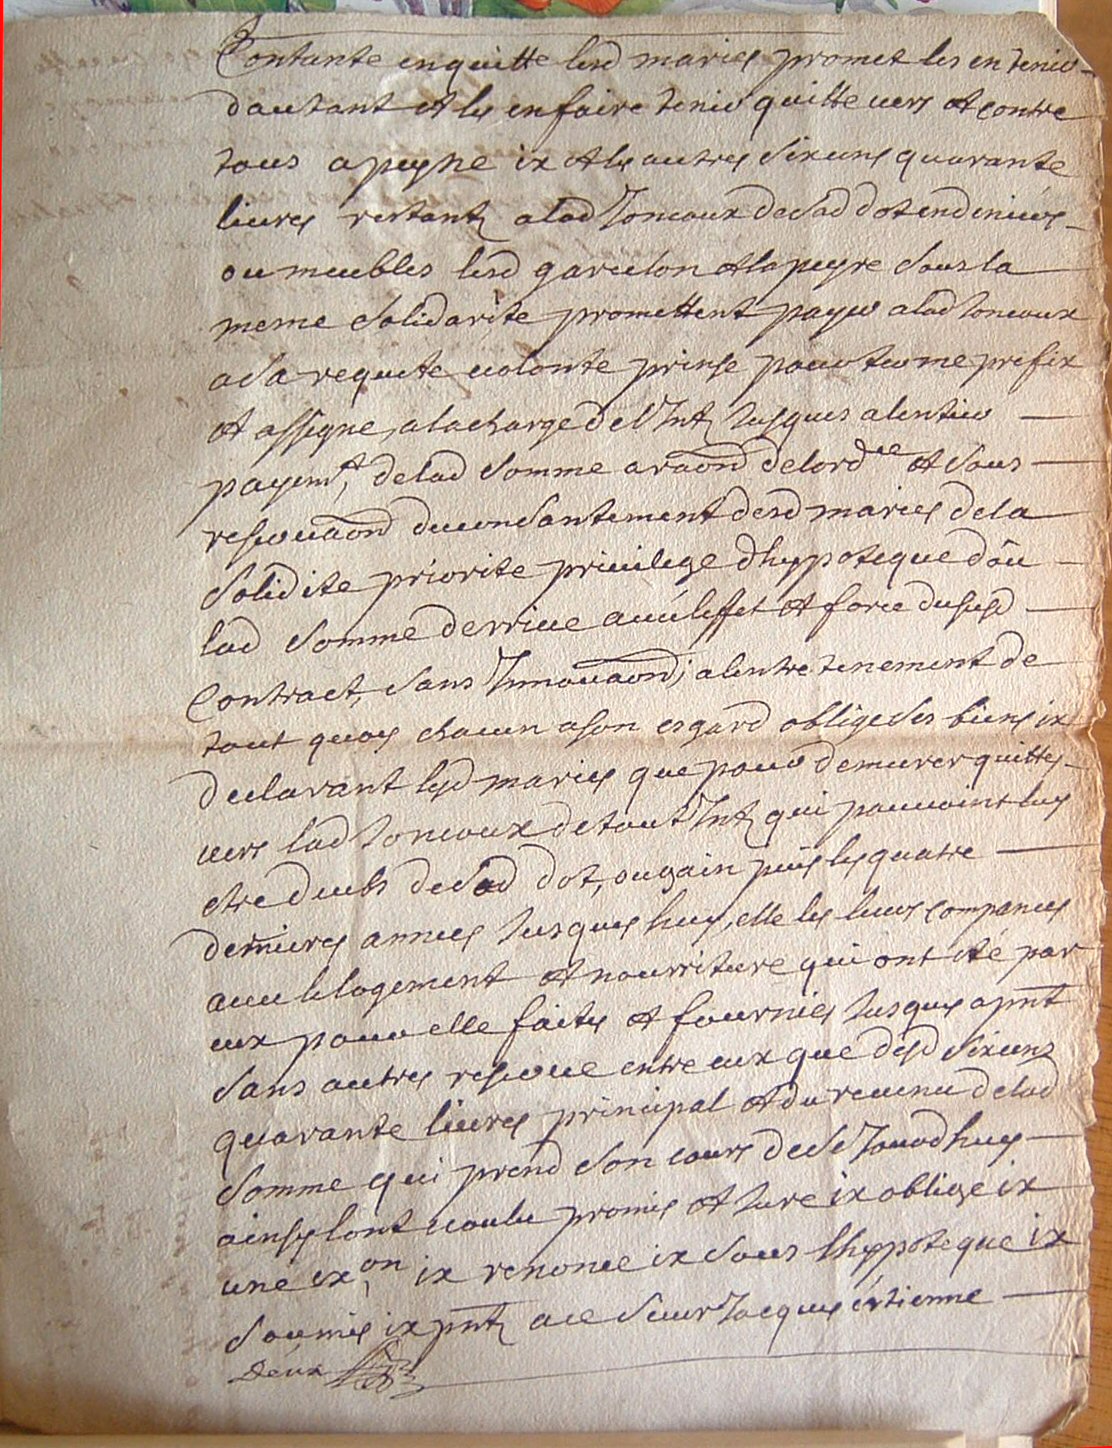 Contante en quitte lesd maries promet les en tenir
dautant et les en faire tenir quitte vers et contre
tous a peyne &c et les autres six cens quarante
livres restants a lad Joncoux de sad dot en deniers
ou meubles lesd garielon et lapeyre sous la
meme solidarite promettent payer a lad Joncoux
a sa requete volonte prinse pour terme prefix
et assigne, a la charge de lInts Jusques a lentier
payemt, de lad somme a raond de lordce et sous
reservaond du consantement desd maries de la
solidite priorite privilege dhypoteque dou
lad somme derrive avec leffet et force du susd
Contract, sans Innovaond; a lentretenement de
tout quoy chacun a son esgard oblige ses biens &c
declarant lesd maries que pour demurer quittes
vers lad Joncoux de tout Ints qui pouvoint luy
etre deubs de sad dot, ou gain puis les quatre
dernieres annees Jusques huy, elle les leurs compances
avec le logement et nourriture qui ont ete par
eux pour elle faits et fournies Jusques a pnt
sans autres reserve entre eux que desd six cens
quarante livres principal et du revenu de lad
somme qui prend son cours de ce Jourdhuy
ainsy lont voulu promis et Jure &c oblige &c
une exon, &c renonce &c sous lhypoteque &c
soumis &c pnts a ce sieur Jacques estienne
Deux